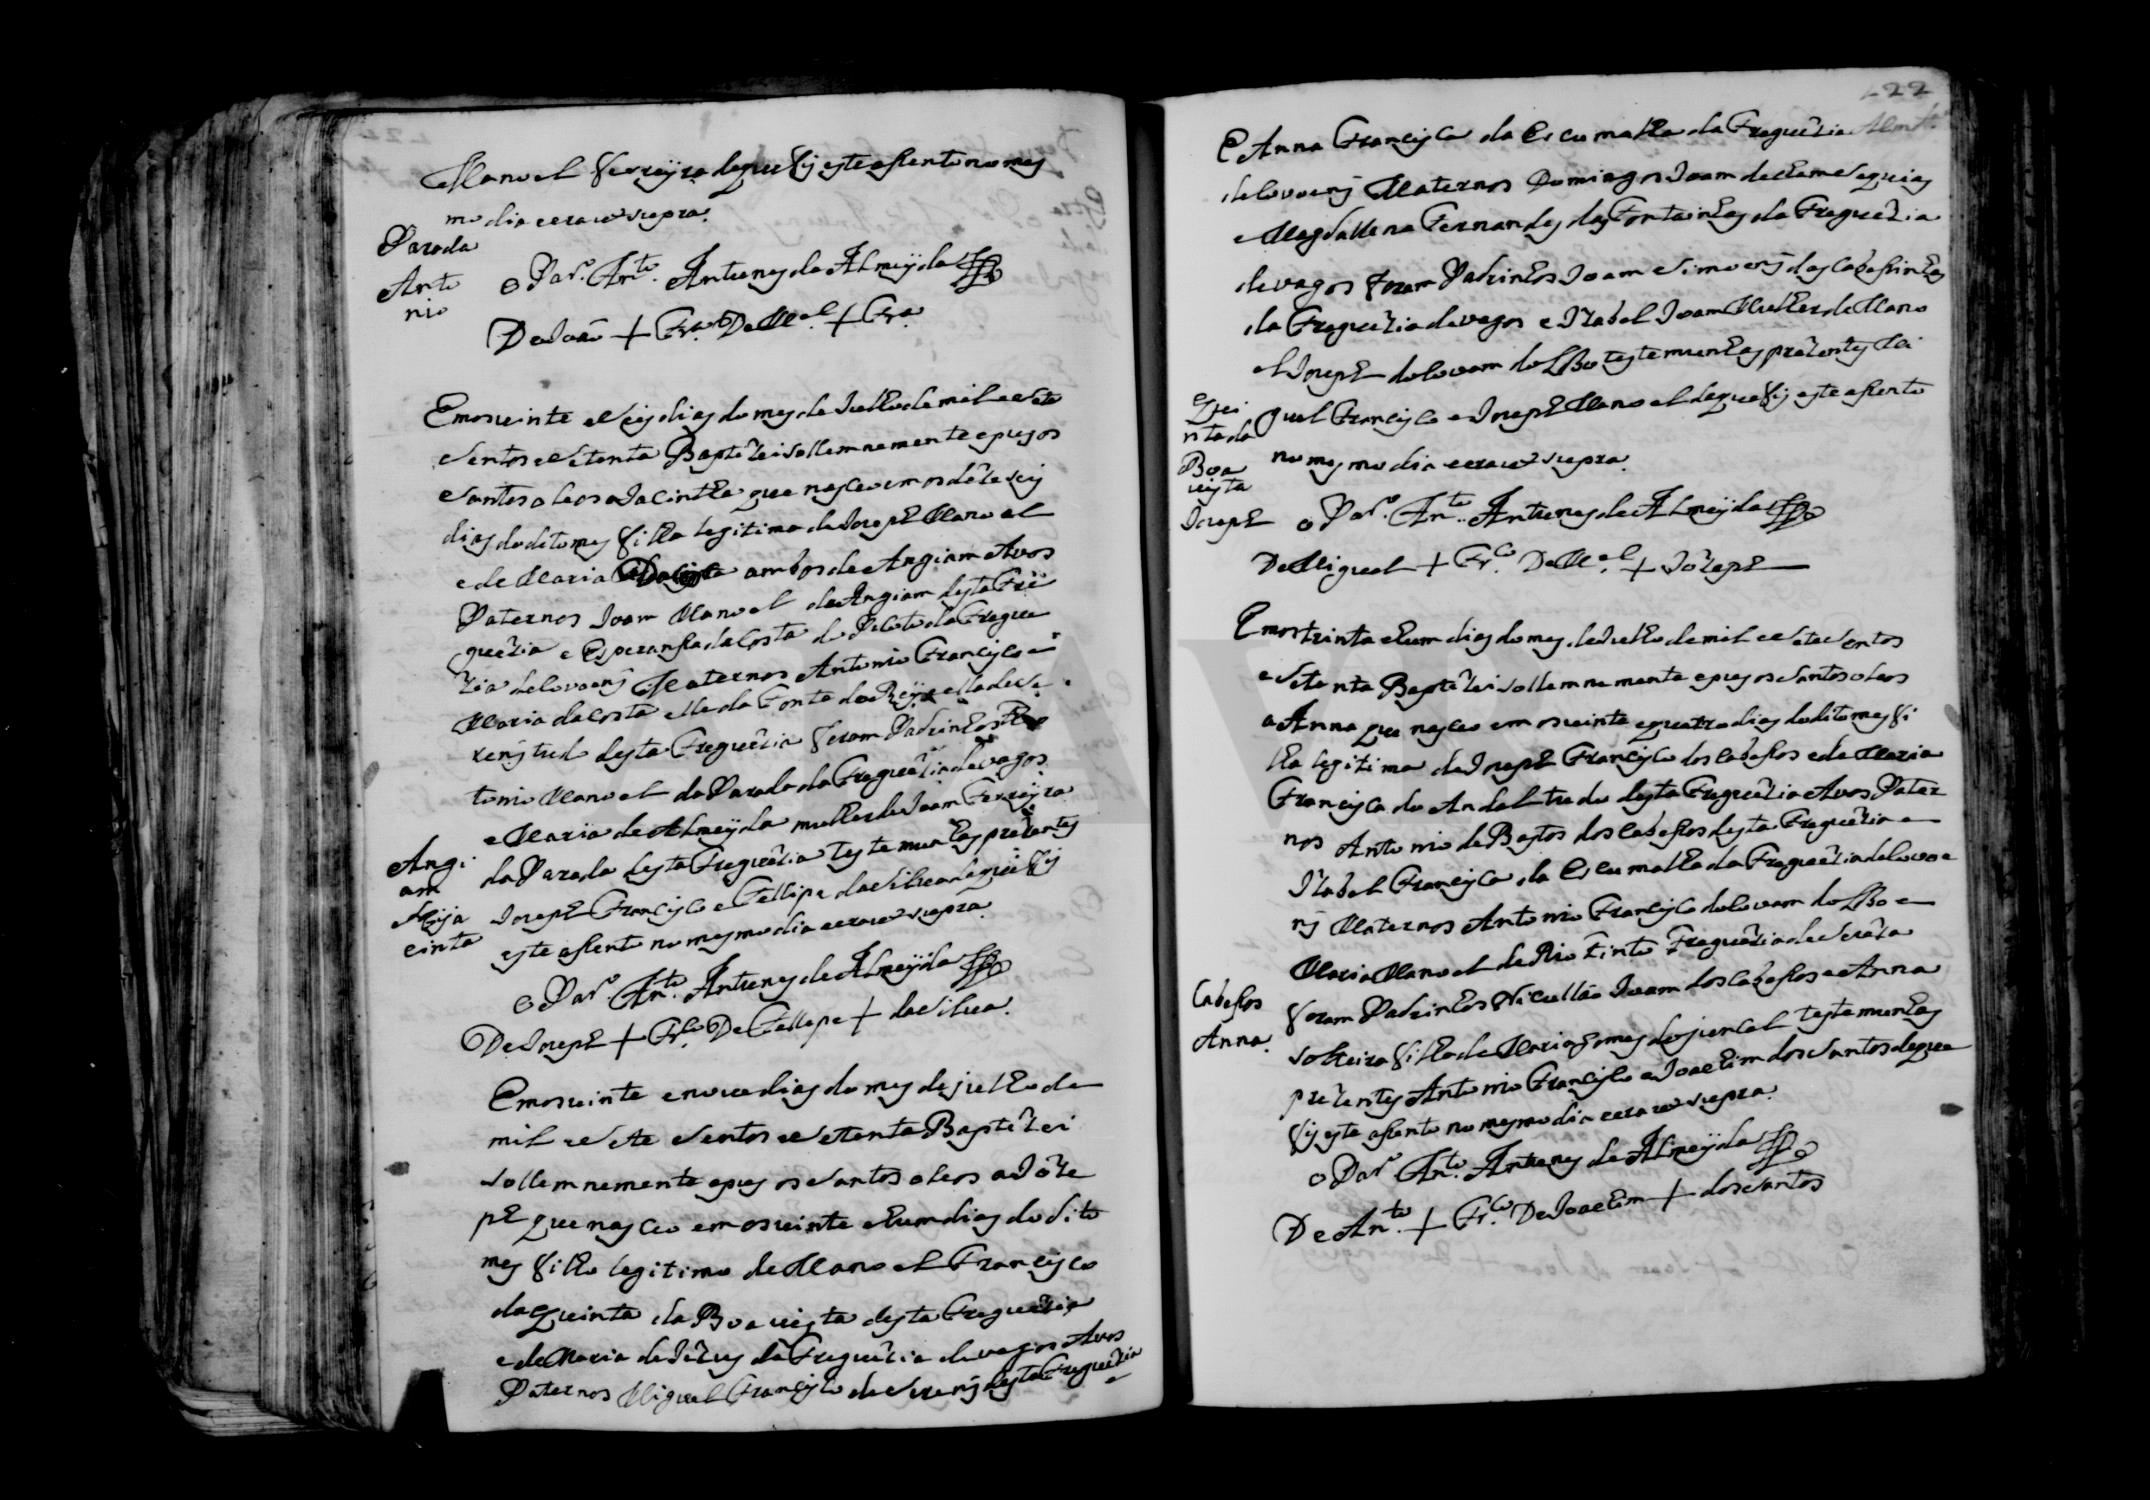 Manoel Ferreyra de que fis este assento no mes
mo dia e era ut supra.
Parada
Anto
nio
o Par.º Ant.º Antunes de Almeyda
De João + Fr.ª De M.el + Fr.ª
Em os vinte e seis dias do mes de Julho de mil e sete
sentos e setenta Baptizei sollemnemente e pus os
santos oleos a Jacintha que nasceo em os dezaseis
dias do dito mes filha legitima de Joseph Manoel
e de Maria ambos de Angiam Avos
Paternos Joam Manoel de Angiam desta Fre
guezia e Esperansa da Costa do Pecoto da Fregue
zia de Covoens Maternos Antonio Francisco e
Maria da Costa elle da Fonte do Rey e ella de Se
tudo desta Freguezia foram Padrinhos
tonio Manoel da Parada da Freguezia de Vagos
e Maria de Almeyda mulher de Joam Ferreyra
da Parada desta Freguezia testemunhas prezentes
Joseph Francisco e Fellipe da Silva de que fis
este assento no mesmo dia e era ut supra.
Angi
am
Jacinta
o Par.º Ant.º Antunes de Almeyda
De Joseph + Fr.co De Fellipe + da Silva.
Em os vinte e nove dias do mes de julho de
mil e sete sentos e setenta Baptizei
sollemnemente e pus os santos oleos a Joze
ph que nasceo em os vinte e hum dias do dito
mes filho legitimo de Manoel Francisco
da Quinta da Boa vista desta Freguezia
e de Maria de Jezus da Freguezia de Vagos Avos
Paternos Miguel Francisco de desta Freguezia
e
122
E Anna Francisca da Escumalha da Freguezia
de Covoens Maternos Domingos Joam de
e Magdallena Fernandes das Fontainhas da Freguezia
de Vagos foram Padrinhos Joam Simoens das Cabessinhas
da Freguezia de Vagos e Izabel Joam Mulher de Mano
el Joseph do Covam do Lobo testemunhas prezentes Mi
guel Francisco e Joseph Manoel de que fis este assento
no mesmo dia e era ut supra.
Qui
nta da
Boa
vista
Joseph
o Par.º Ant.º Antunes de Almeyda
De Miguel + Fr.co De M.el + Jozeph
Em os trinta e hum dias do mes de Julho de mil e sete sentos
e setenta Baptizei sollemnemente e pus os santos oleos
a Anna que nasceo em os vinte e quatro dias do dito mes fi
lha legitima de Joseph Francisco dos Cabessos e de Maria
Francisca do Andal tudo desta Freguezia Avos Pater
nos Antonio de Bastos dos Cabessos desta Freguezia e
Izabel Francisca da Escumalha da Freguezia de Covoe
ns Maternos Antonio Francisco do Covam do Lobo e
Maria Manoel de Rio tinto Freguezia de Soza
foram Padrinhos Nicullao Joam dos Cabessos e Anna
solteira filha de Maria Gomes do juncal testemunhas
prezentes Antonio Francisco e Joachim dos Santos de que
fis este assento no mesmo dia e era ut supra.
Cabessos
Anna.
o Par.º Ant.º Antunes de Almeyda
De Ant.º + Fr.co De Joachim + dos Santos